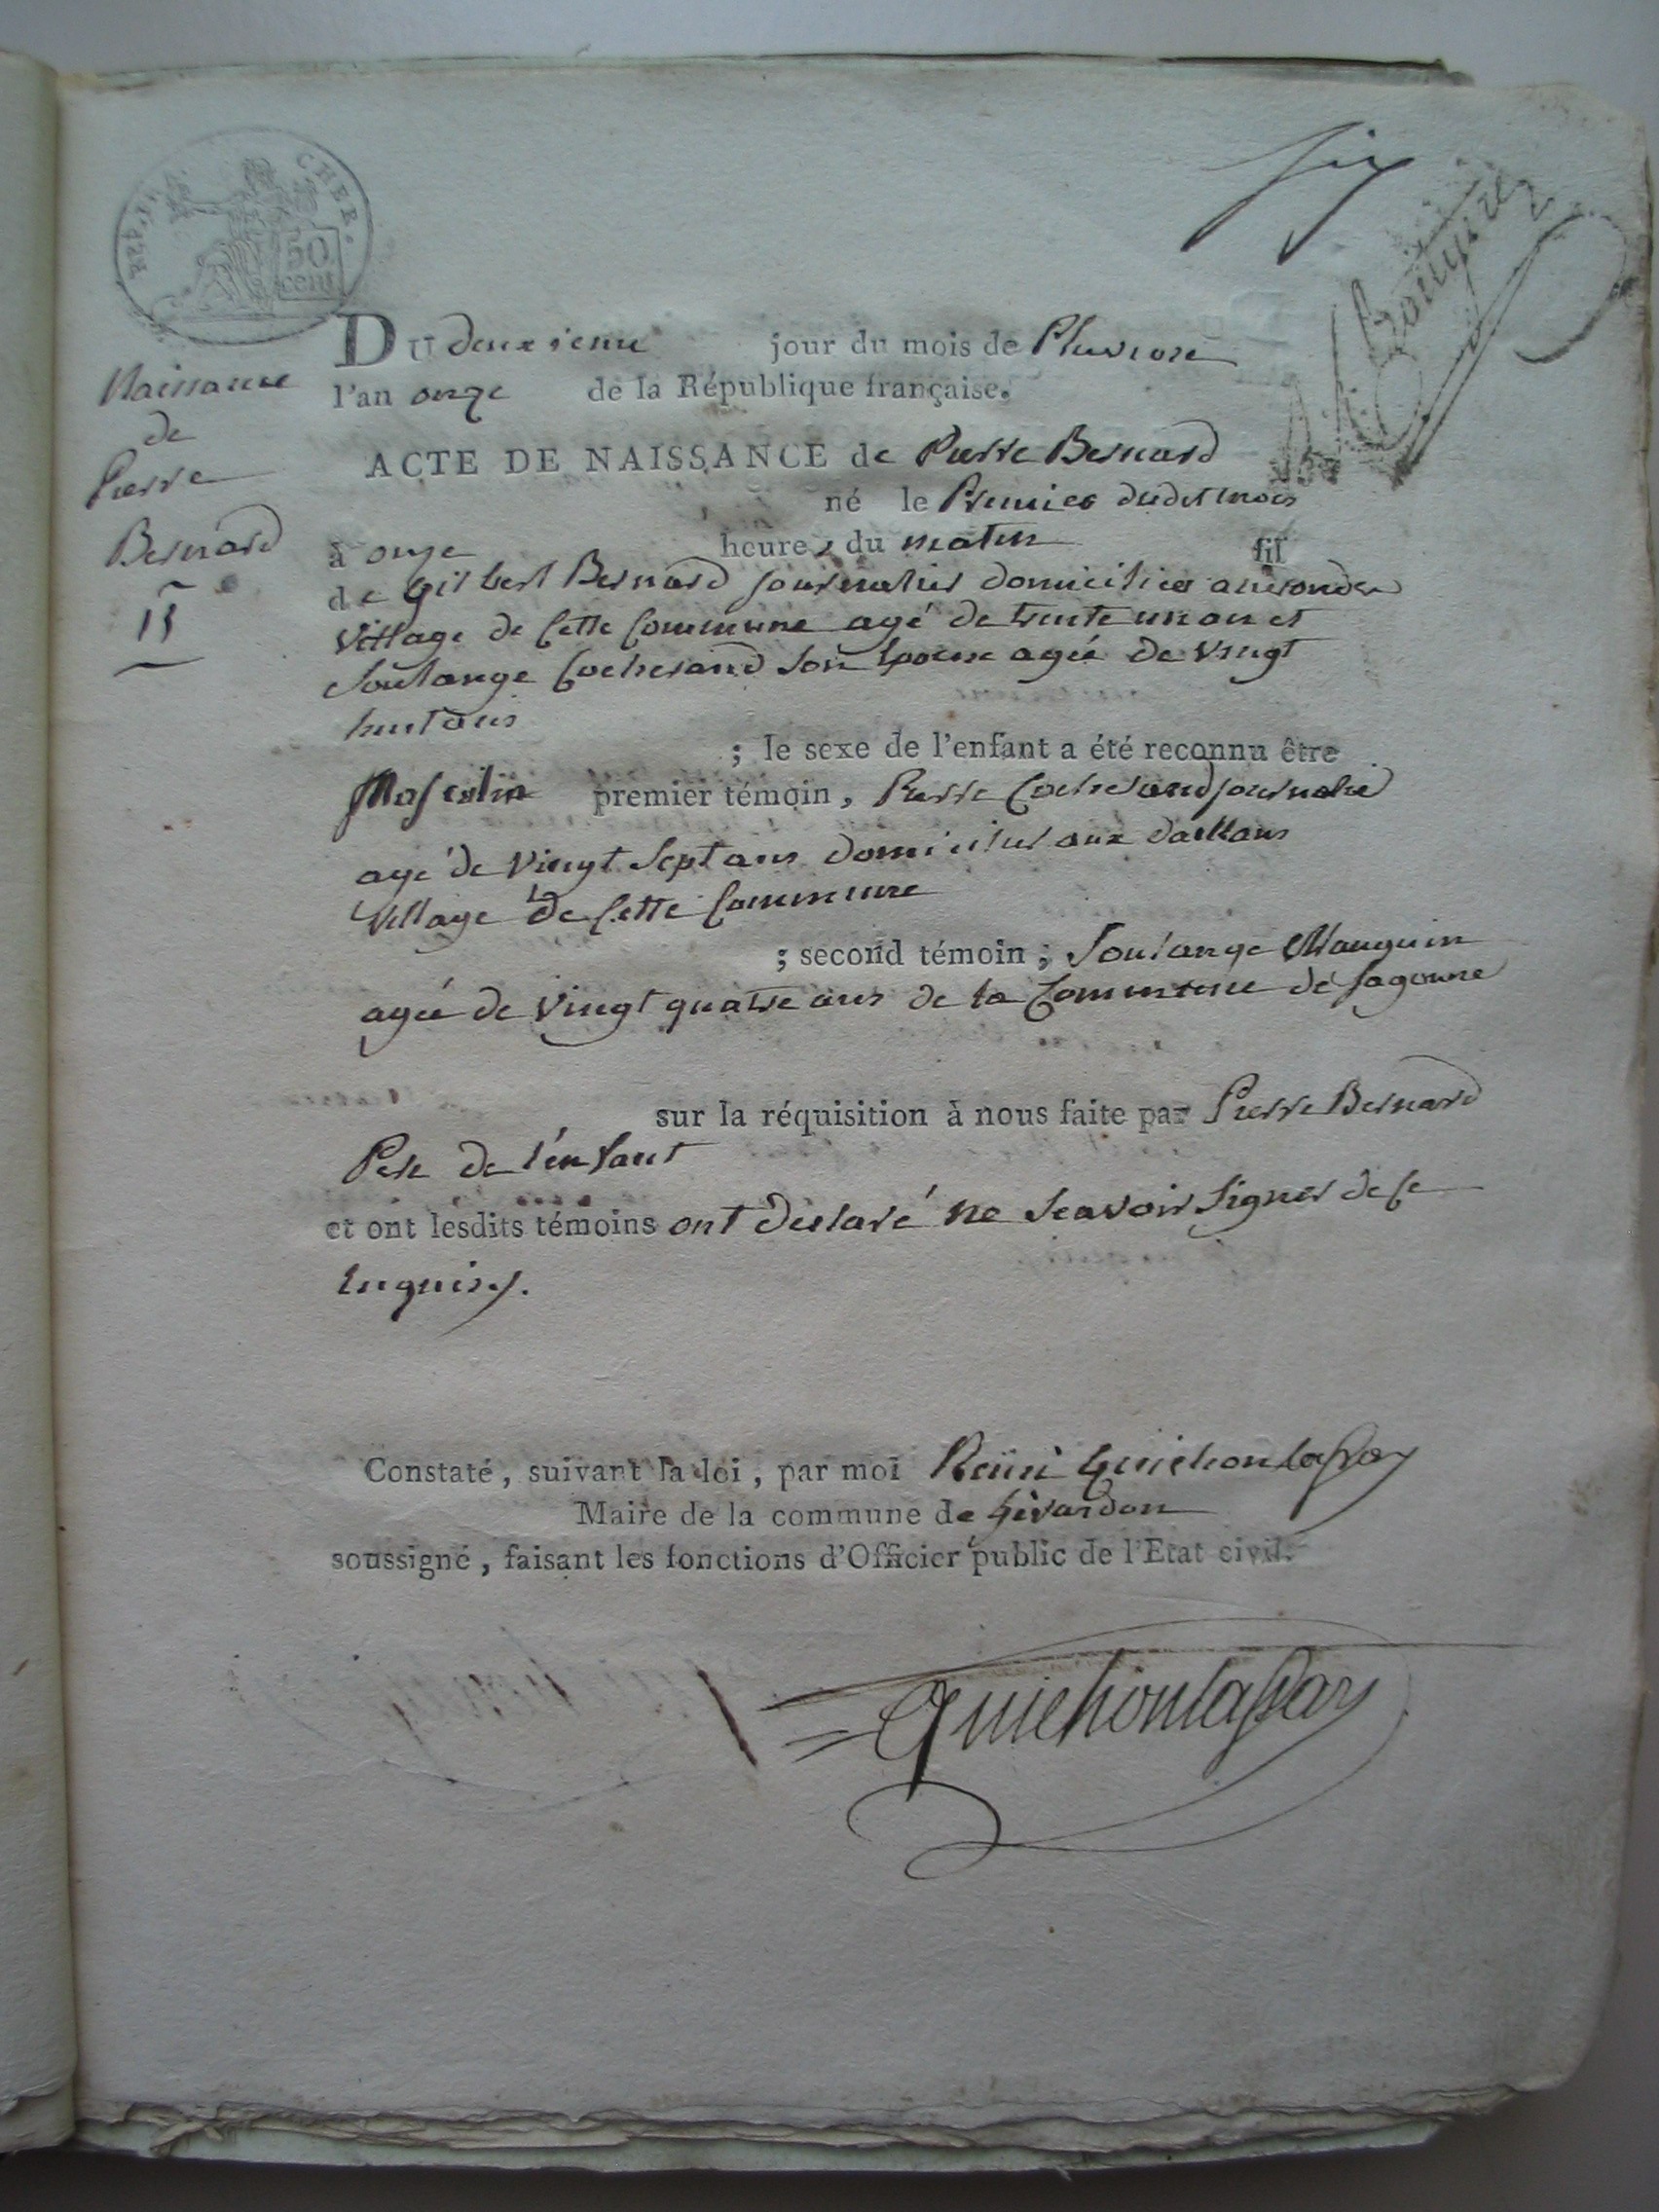 six
RÉP. FRA.
CHER.
50
cent
Bouyre
Du deuxieme jour du mois de Pluviose
l'an onze de la République française.
Naissance
de
Pierre
Bernard
ACTE DE NAISSANCE de Pierre Bernard
né le Premier dudit mois
à onze heures du matin fil
de Gilbert Bernard journalier domicilier
village de Cette Commune agé de trente un an et
Soulange Cocherand Son Epouse agée de vingt
huit ans
; le sexe de l'enfant a été reconnu être
Masculin premier témoin, Pierre Cocherand journalie
agé de vingt Sept ans domicilié aux daellons
village de Cette Commune
; second témoin ; Soulange Mauguin
agée de vingt quatre ans de la Commune de Sagonne
sur la réquisition à nous faite par Pierre Bernard
Pere de l'énfant
et ont lesdits témoins ont déclaré ne Scavoir Signer de ce
Enquis.
Constaté, suivant la loi, par moi Rémi Guichonlapray
Maire de la commune de Givardon
soussigné, faisant les fonctions d'Officier public de l'Etat civil.
Guichonlapray